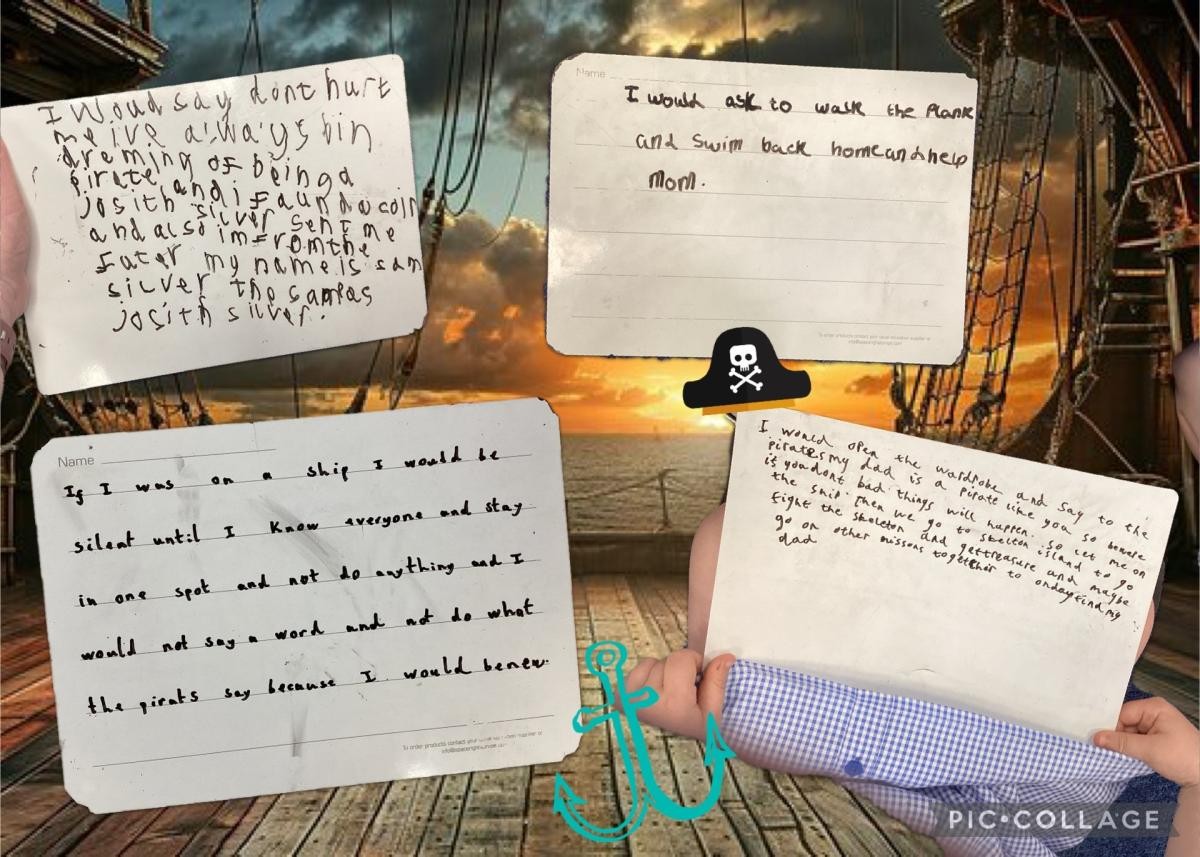 I Woud say dont hurt
me ive always bin
dreming of being a
pirate
josith and i faund a coin
and also silver sent me
im from the
futer my name is sam
silver the samas
josith silver.
Name
I would ask to walk the Plank
and swim back home and help
Mom.
To order products contact your usual education supplier or
Name
If I was on a ship I would be
silent until I know everyone and stay
in one spot and not do anything and I
would not say a word and not do what
the pirats say because I would be new.
To order products contact your
I would open the wardrobe and say to the
pirates my dad is a pirate like you so
if you dont bad things will happen. So let me on
the ship. Then we go to skelton island to go
fight the skeleton and get treasure and maybe
go on other missons together to onday find my
dad
PIC•COLLAGE